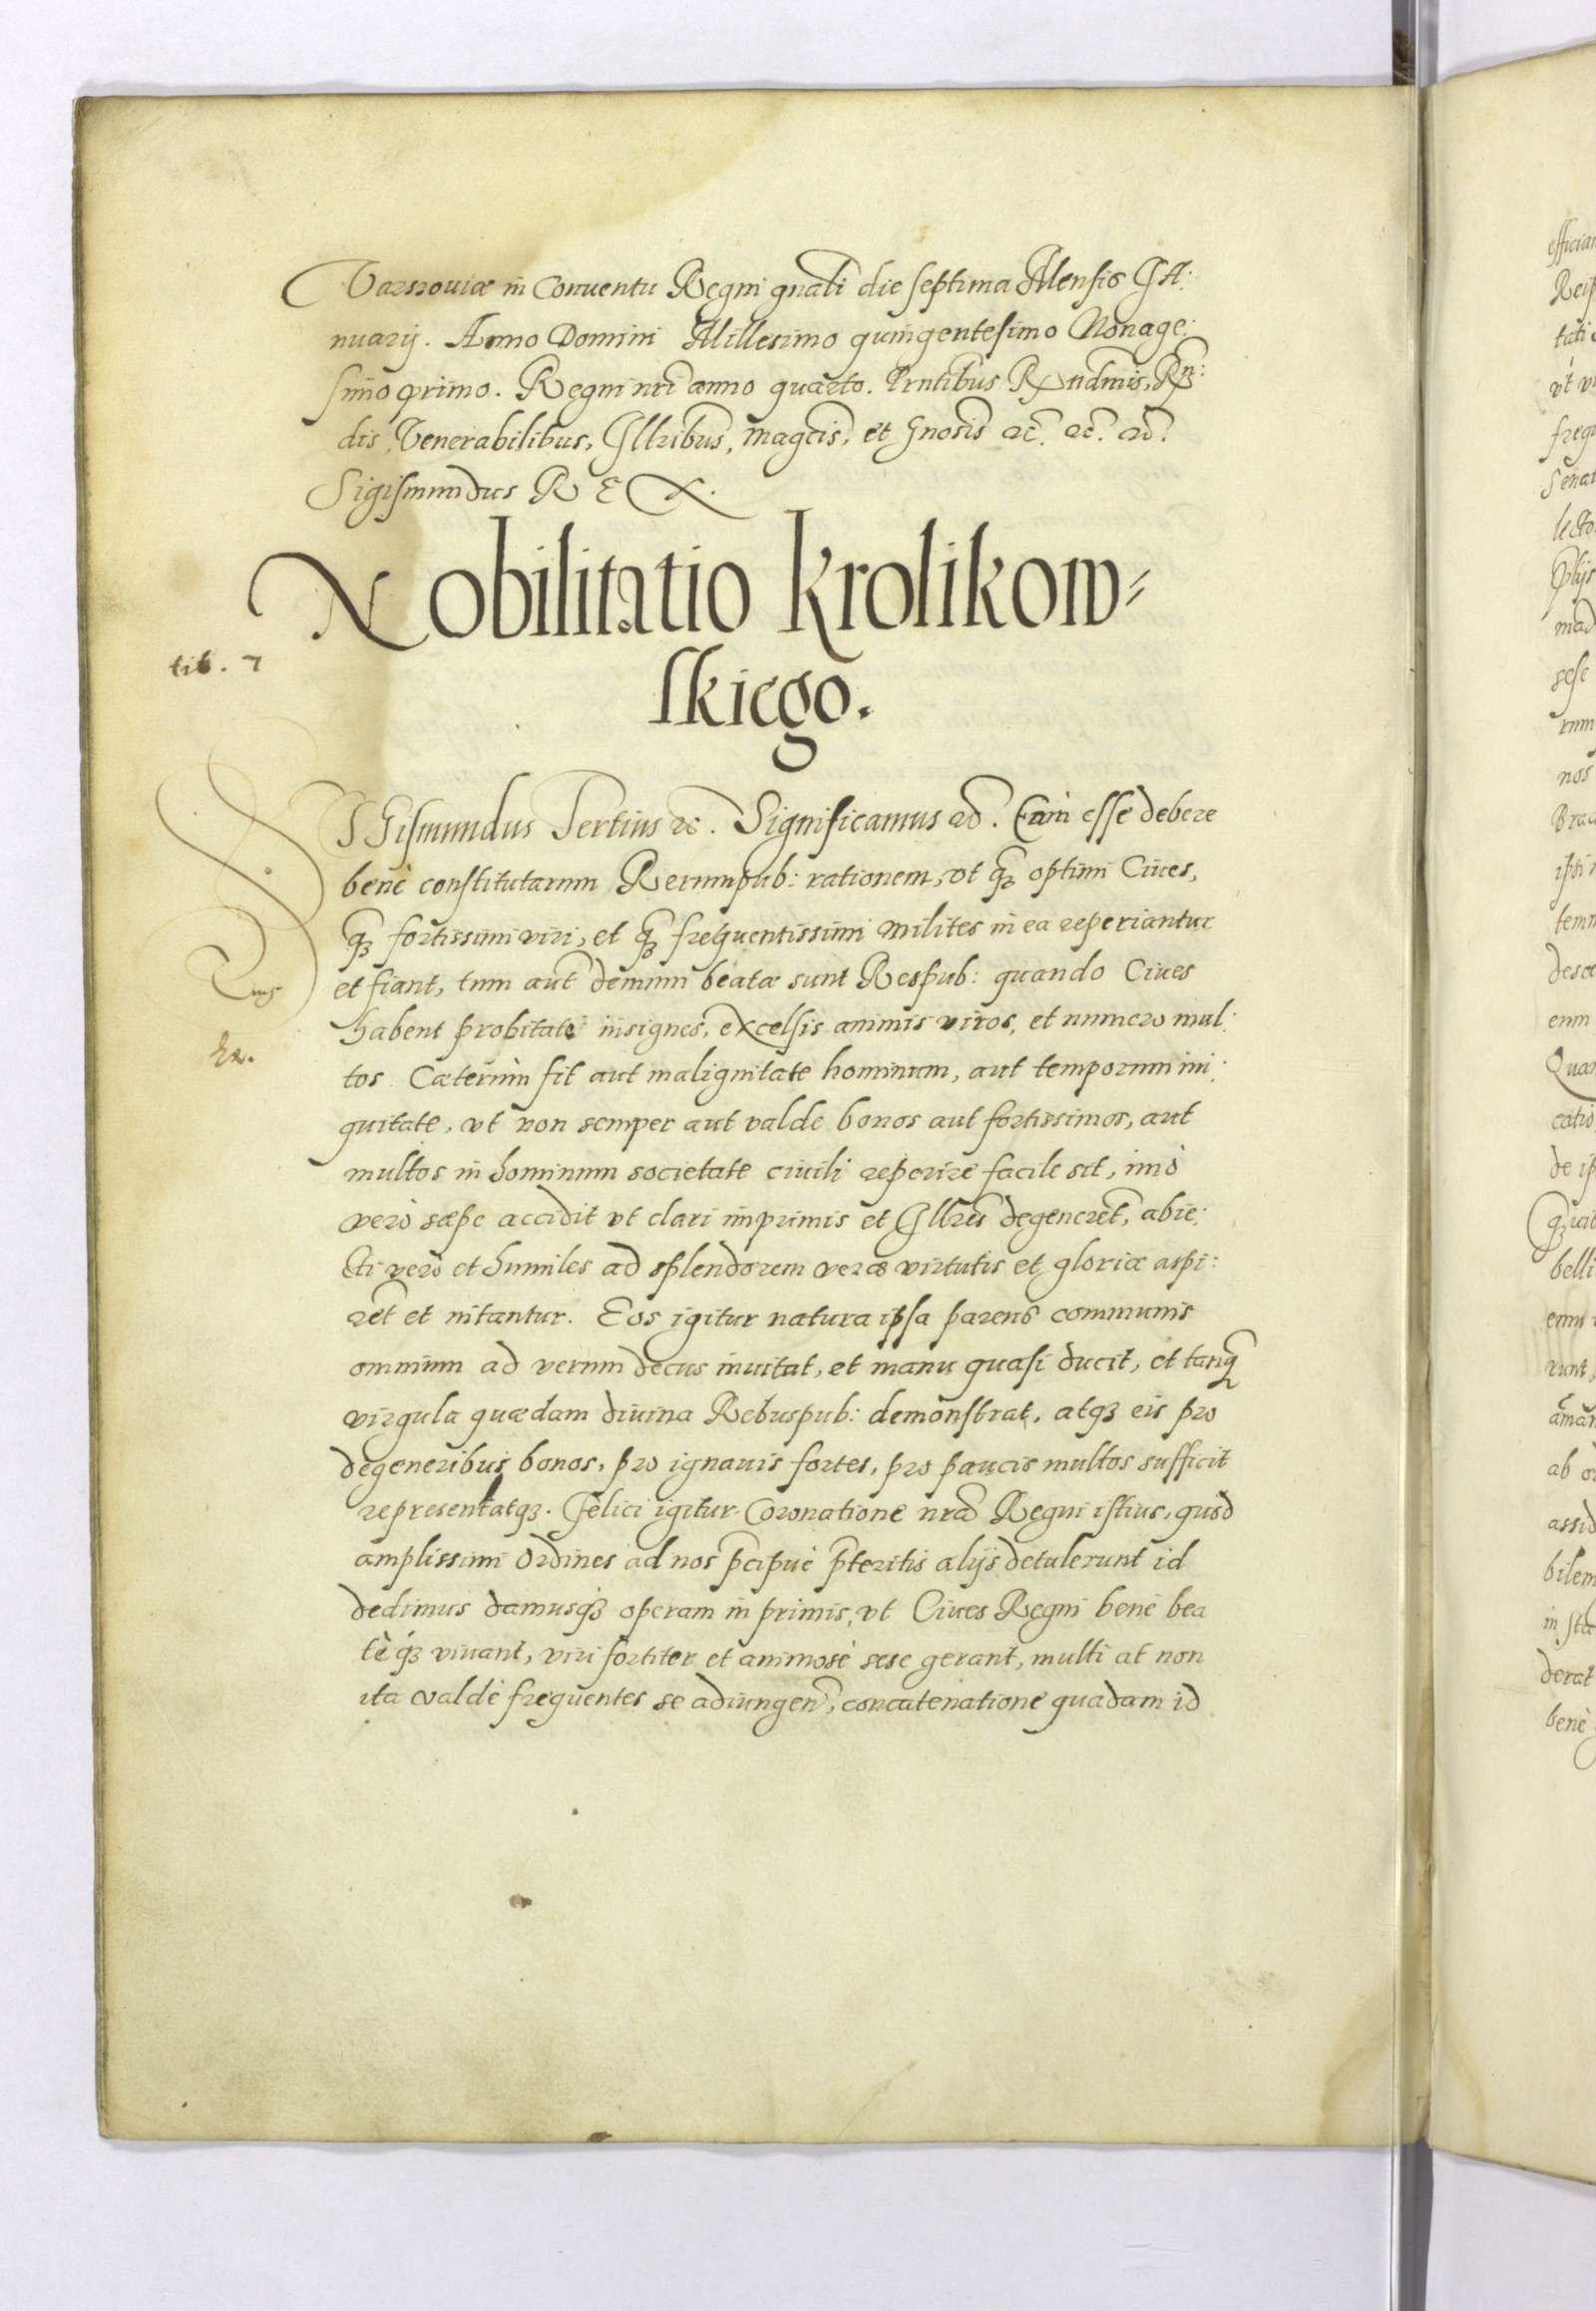 Varsouiæ in Conuentu Regni gnali die septima Mensis JA:
nuarij. Anno Domini Millesimo quingentesimo Nonage:
simo primo. Regni nri anno quarto. Prntibus Rxndmis, Rxn:
dis, Venerabilibus, Jllribus, magcis, et Gnosis ac. ac. ad.
Sigismundus REX.
Nobilitatio Krolikow=
skiego.
lib. 7
SIGismundus Tertius ac. Significamus ad. Eam esse debere
benè constitutarum Rerumpub: rationem, vt qȝ optimi Ciues,
qȝ fortissimi viri, et qȝ frequentissimi milites in ea reperiantur
et fiant, tum aut demum beatæ sunt Respub: quando Ciues
habent probitate insignes, excelsis animis viros, et numero mul:
tos. Cæterùm fit aut malignitate hominum, aut temporum ini:
quitate, vt non semper aut valde bonos aut fortissimos, aut
multos in hominum societate ciuili reperire facile sit, imò
verò sæpe accidit vt clari imprimis et Jllres degeneret, abie:
cti verò et humiles ad splendorem veræ virtutis et gloriæ aspi:
ret et nitantur. Eos igitur natura ipsa parens communis
omnium ad verum decus inuitat, et manu quasi ducit, et tanqȝ
virgula quædam diuina Rebuspub: demonstrat, atqȝ eis pro
degeneribus bonos, pro ignauis fortes, pro paucis multos sufficit
representatqȝ. Felici igitur Coronatione nra Regni istius, quod
amplissimi Ordines ad nos pcipuè pteritis alijs detulerunt id
dedimus damusqȝ operam in primis, vt Ciues Regni benè bea
tè qȝ viuant, viri fortiter et animosè sese gerant, multi at non
ita valdè frequentes se adiungen, concatenatione quadam id